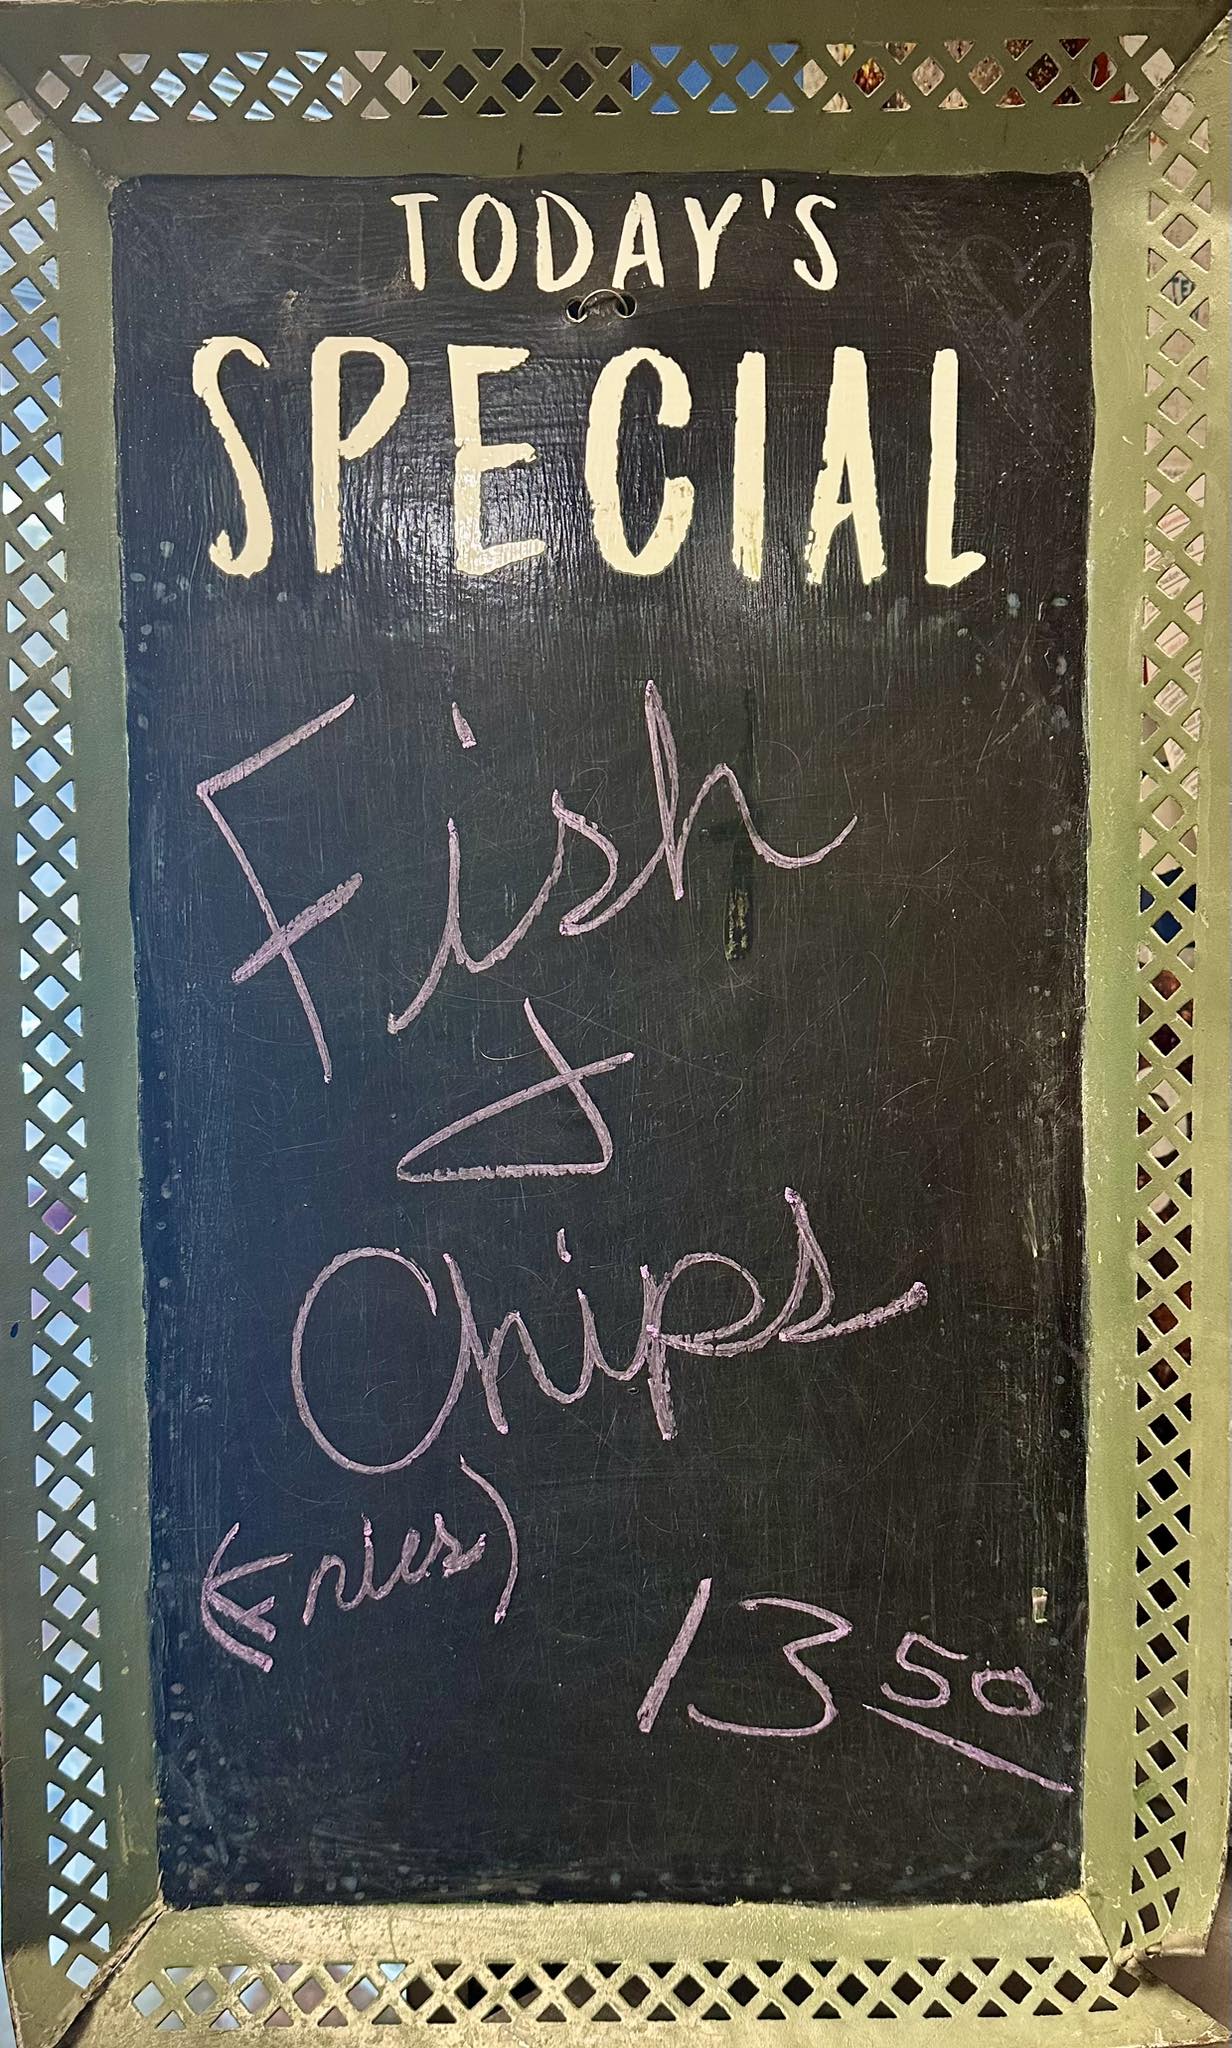 TODAY'S
SPECIAL
Fish
&
Chips
(Fries)
13 50